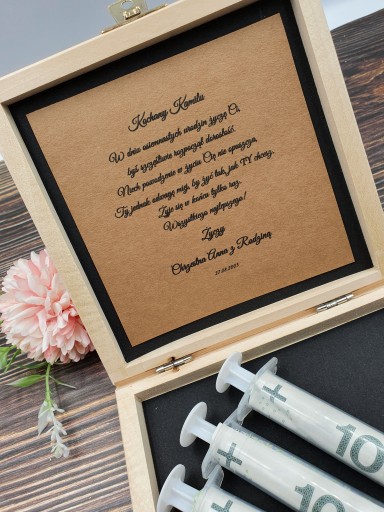 Kochany Kamilu
W dniu osiemnastych urodzin życzę Ci,
byś szczęśliwie rozpoczął dorosłość.
Niech powodzenie w życiu Cię nie opuszcza,
Ty jednak odwagę miej, by żyć tak, jak TY chcesz.
Żyje się w końcu tylko raz.
Wszystkiego najlepszego!
Życzy
Chrzestna Anna z Rodziną
17.08.2023
+ 10
+ 10
+